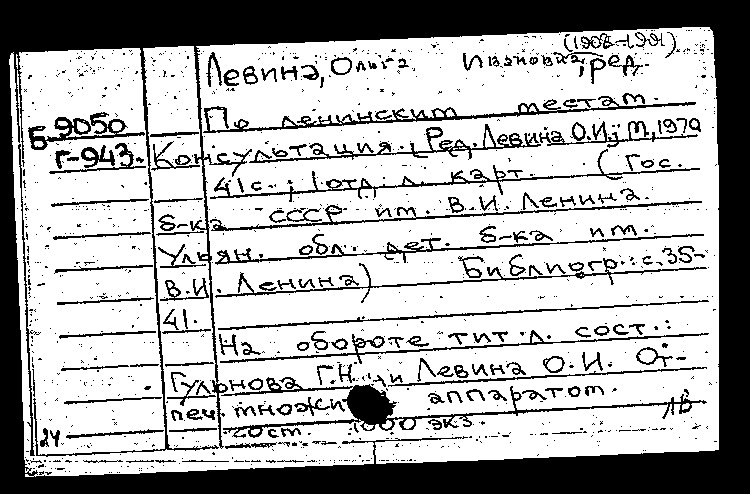 (1908-1991)
Левина, Ольга Ивановна, ред.
Б 9050
Г-943.
По ленинским местам.
Консультация. [Ред. Левина О.И.; М., 1970
41 с.; 1 отд. л. карт. (Гос.
б-ка СССР им. В.И. Ленина.
Ульян. обл. дет. б-ка им.
В.И. Ленина) Библиогр.: с. 35-
41.
На обороте тит. л. сост.:
Гульнова Г.Н. и Левина О.И. От-
печ. множи аппаратом.
1000 экз.
24
ЛВ